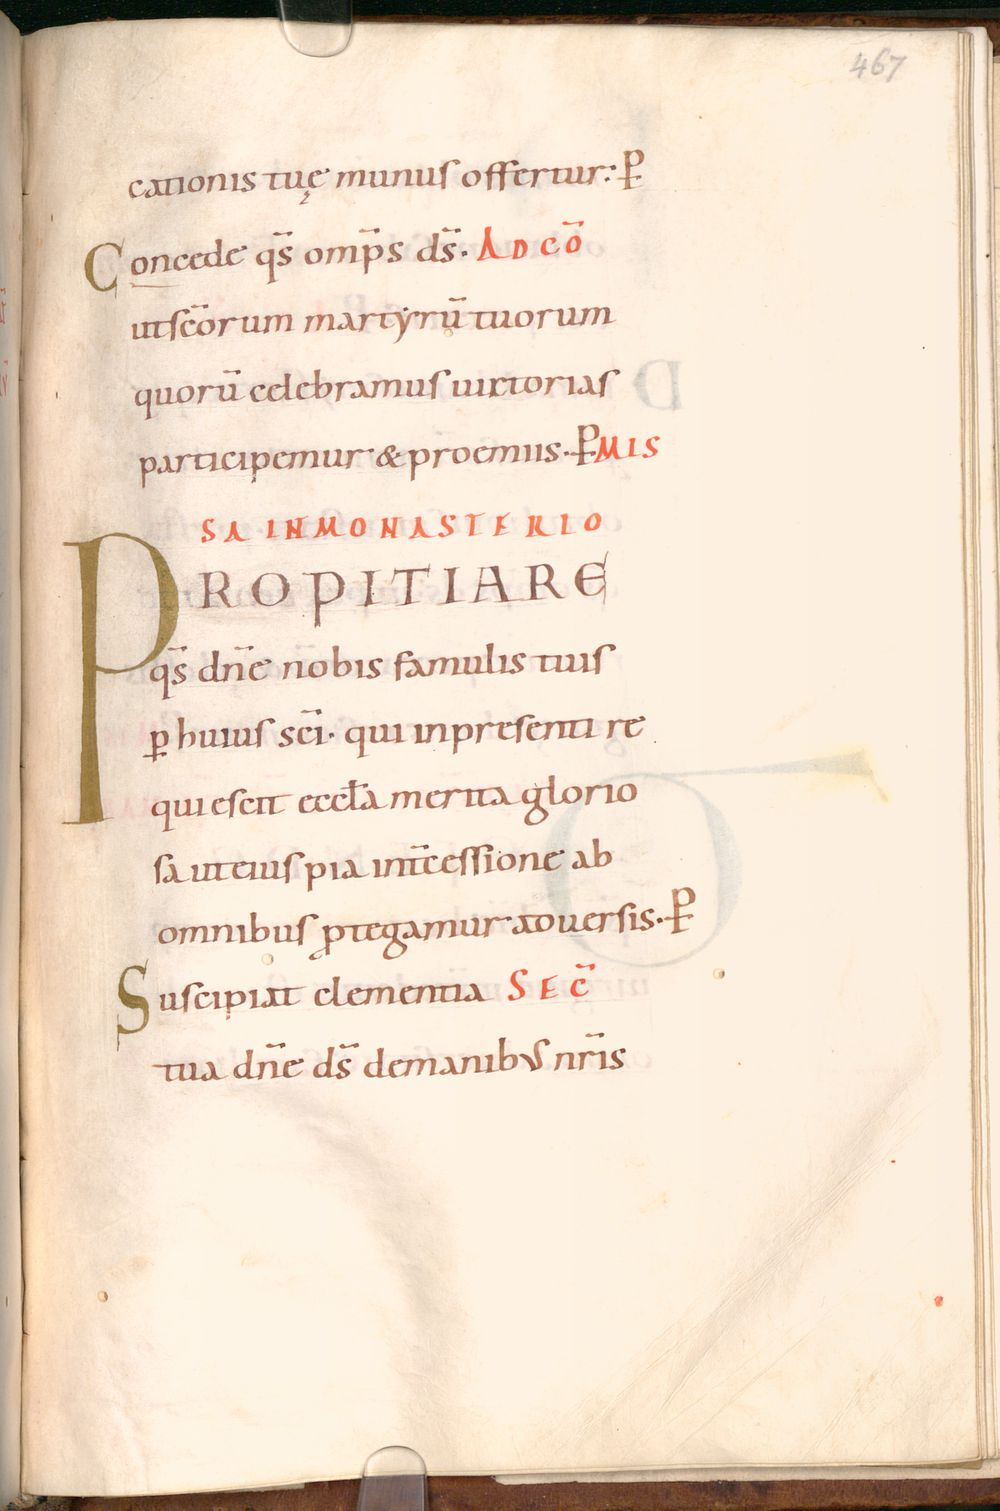 467
cationis tuę munus offertur: P̄
Concede q̄s om̄ps d̄s. AD CŌ
utsc̄orum martyrū tuorum
quorū celebramus uictorias
participemur & proemiis. P̄ MIS
SA IN MONASTERIO
PROPITIARE
q̄s dn̄e nobis famulis tuis
ꝑ huius sc̄i. qui inpresenti re
quiescit eccl̄a merita glorio
sa ut eius pia int̄cessione ab
omnibus ꝓtegamur aduersis. P̄
Suscipiat clementia SEC̄
tua dn̄e d̄s demanibus nr̄is